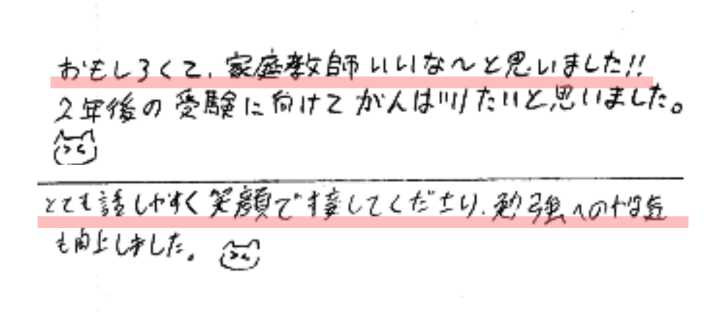 おもしろくて、家庭教師いいな～と思いました!!
2年後の受験に向けてがんばりたいと思いました。
とても話しやすく笑顔で接してくださり、勉強への
も向上しました。